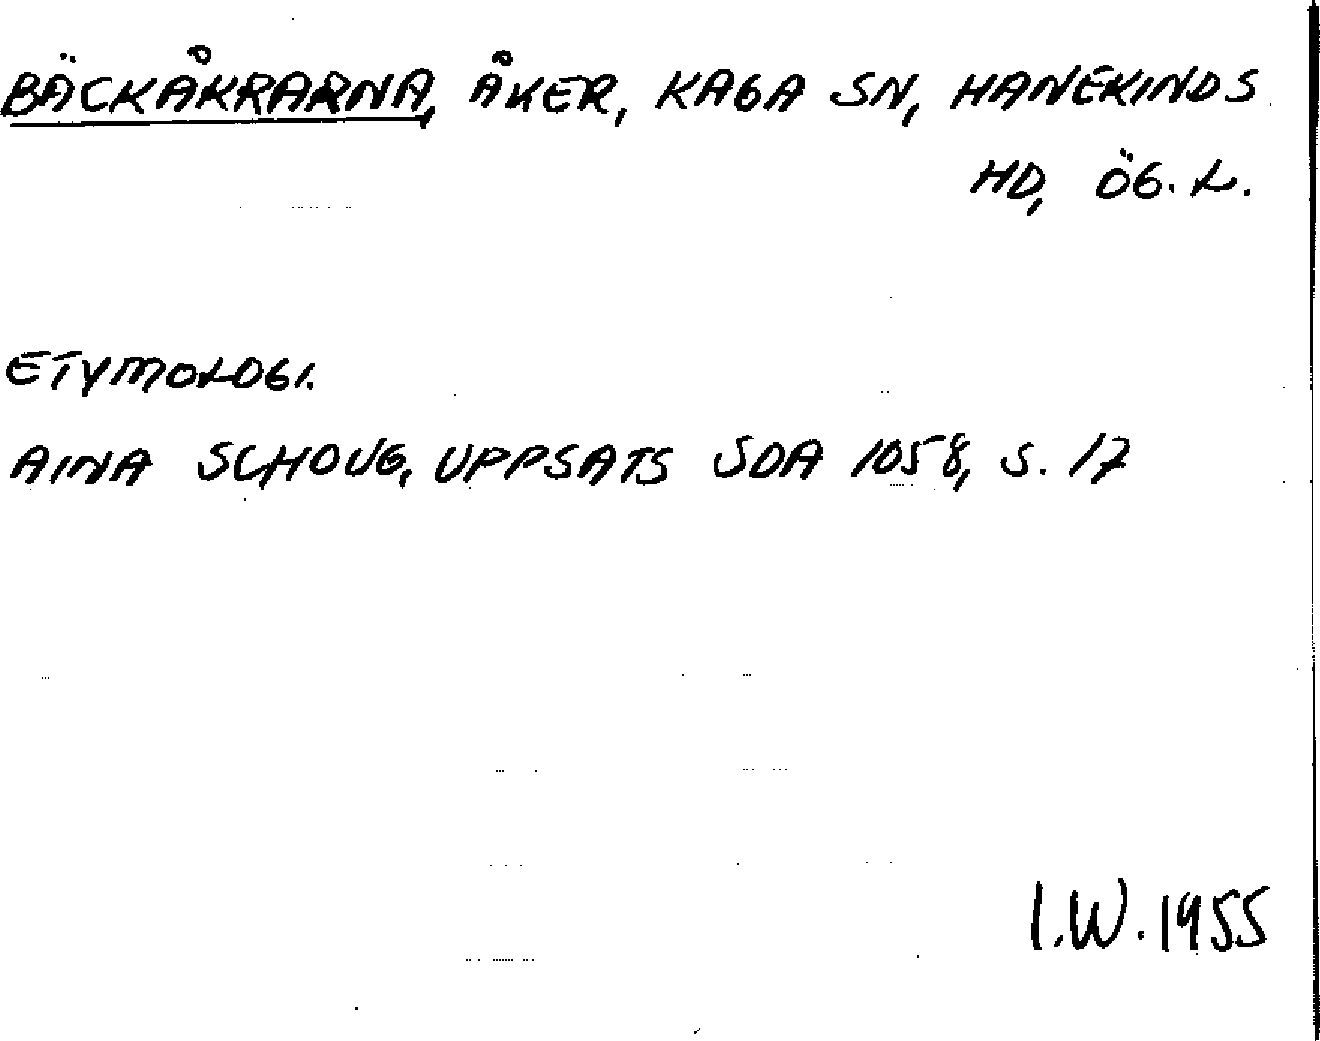 BÄCKÅKRARNA, ÅKER, KAGA SN, HANEKINDS
HD, ÖG. L.
ETYMOLOGI.
AINA SCHOUG, UPPSATS SOA 1058, S. 17
I.W. 1955